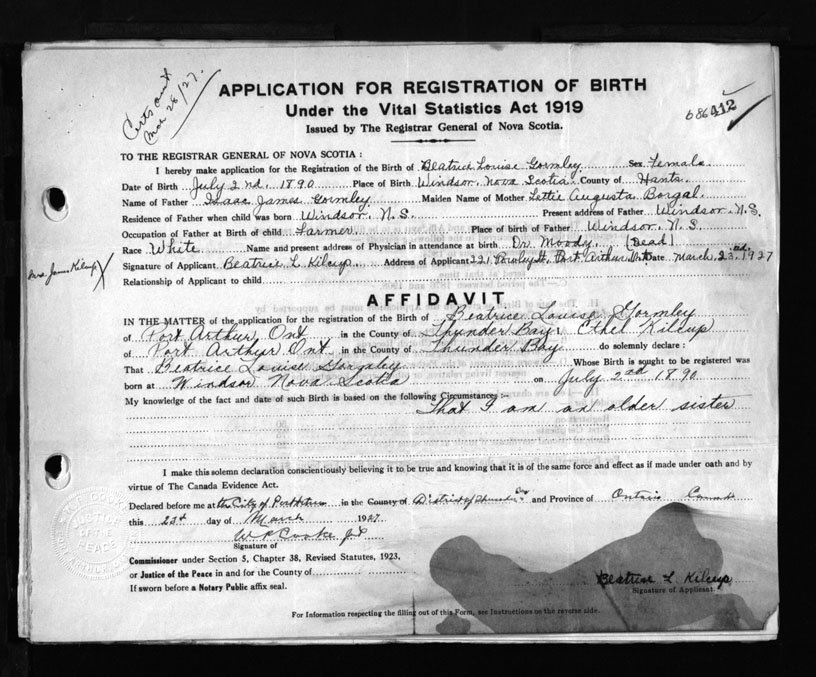 Certs out
Mar 28/27.
b 86412
APPLICATION FOR REGISTRATION OF BIRTH
Under the Vital Statistics Act 1919
Issued by The Registrar General of Nova Scotia.
TO THE REGISTRAR GENERAL OF NOVA SCOTIA:
I hereby make application for the Registration of the Birth of Beatrice Louise Gormley Sex Female
Date of Birth July 2nd. 1890 Place of Birth Windsor, Nova Scotia County of Hants
Name of Father Isaac James Gormley Maiden Name of Mother Lettie Augusta Borgal
Residence of Father when child was born Windsor, N.S. Present address of Father Windsor N.S.
Occupation of Father at Birth of child Farmer Place of birth of Father Windsor, N.S.
Race White Name and present address of Physician in attendance at birth Dr. Moody. (Dead)
Mrs James Kilcup X
Signature of Applicant Beatrice L Kilcup Address of Applicant 221 St. Port Arthur Ont Date March 23rd, 1927
Relationship of Applicant to child
AFFIDAVIT
IN THE MATTER of the application for the registration of the Birth of Beatrice Louise Gormley
of Port Arthur Ont in the County of Thunder Bay I Ethel Kilcup
of Port Arthur Ont in the County of Thunder Bay do solemnly declare:
That Beatrice Louise Gormley Whose Birth is sought to be registered was
born at Windsor Nova Scotia on July 2nd 1890
My knowledge of the fact and date of such Birth is based on the following Circumstances:-
That I am an older sister
I make this solemn declaration conscientiously believing it to be true and knowing that it is of the same force and effect as if made under oath and by
virtue of The Canada Evidence Act.
Declared before me at the City of Port Arthur in the County of District of Thunder Bay and Province of Ontario
this 23rd day of March 1927
Cooke J.P.
Signature of
Commissioner under Section 5, Chapter 38, Revised Statutes, 1923,
or Justice of the Peace in and for the County of
If sworn before a Notary Public affix seal.
JUSTICE
OF THE
PEACE
Beatrice L Kilcup
Signature of Applicant
For Information respecting the filling out of this Form, see Instructions on the reverse side.